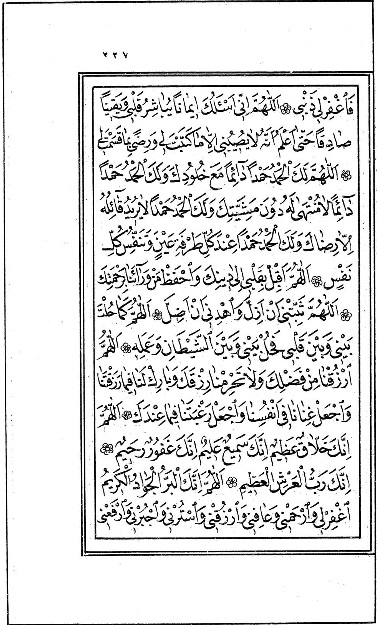 ٢٢٧
فَاغْفِرْ لِي ذَنْبِي اَللّٰهُمَّ اِنِّي اَسْئَلُكَ اِيمَانًا يُبَاشِرُ قَلْبِي وَيَقِينًا
صَادِقًا حَتّٰى اَعْلَمَ اَنَّهُ لَا يُصِيبُنِي اِلَّا مَا كَتَبْتَ لِي وَرِضًى بِمَا قَسَمْتَ لِي
اَللّٰهُمَّ لَكَ الْحَمْدُ حَمْدًا دَائِمًا مَعَ خُلُودِكَ وَلَكَ الْحَمْدُ حَمْدًا
دَائِمًا لَا مُنْتَهٰى لَهُ دُونَ مَشِيَّتِكَ وَلَكَ الْحَمْدُ حَمْدًا لَا يُرِيدُ قَائِلُهُ
اِلَّا رِضَاكَ وَلَكَ الْحَمْدُ حَمْدًا عِنْدَ كُلِّ طَرْفَةِ عَيْنٍ وَتَنَفُّسِ كُلِّ
نَفْسٍ اَللّٰهُمَّ اَقْبِلْ بِقَلْبِي اِلٰى دِينِكَ وَاحْفَظْ مِنْ وَرَائِنَا بِرَحْمَتِكَ
اَللّٰهُمَّ ثَبِّتْنِي اَنْ اَزِلَّ وَاهْدِنِي اَنْ اَضِلَّ اَللّٰهُمَّ كَمَا حُلْتَ
بَيْنِي وَبَيْنَ قَلْبِي فَحُلْ بَيْنِي وَبَيْنَ الشَّيْطَانِ وَعَمَلِهِ اَللّٰهُمَّ
ارْزُقْنَا مِنْ فَضْلِكَ وَلَا تَحْرِمْنَا رِزْقَكَ وَبَارِكْ لَنَا فِيمَا رَزَقْتَنَا
وَاجْعَلْ غِنَانَا فِي اَنْفُسِنَا وَاجْعَلْ رَغْبَتَنَا فِيمَا عِنْدَكَ اَللّٰهُمَّ
اِنَّكَ خَلَّاقٌ عَظِيمٌ اِنَّكَ سَمِيعٌ عَلِيمٌ اِنَّكَ غَفُورٌ رَحِيمٌ
اِنَّكَ رَبُّ الْعَرْشِ الْعَظِيمِ اَللّٰهُمَّ اِنَّكَ الْبَرُّ الْجَوَادُ الْكَرِيمُ
اغْفِرْ لِي وَارْحَمْنِي وَعَافِنِي وَارْزُقْنِي وَاسْتُرْنِي وَاجْبُرْنِي وَارْفَعْنِي